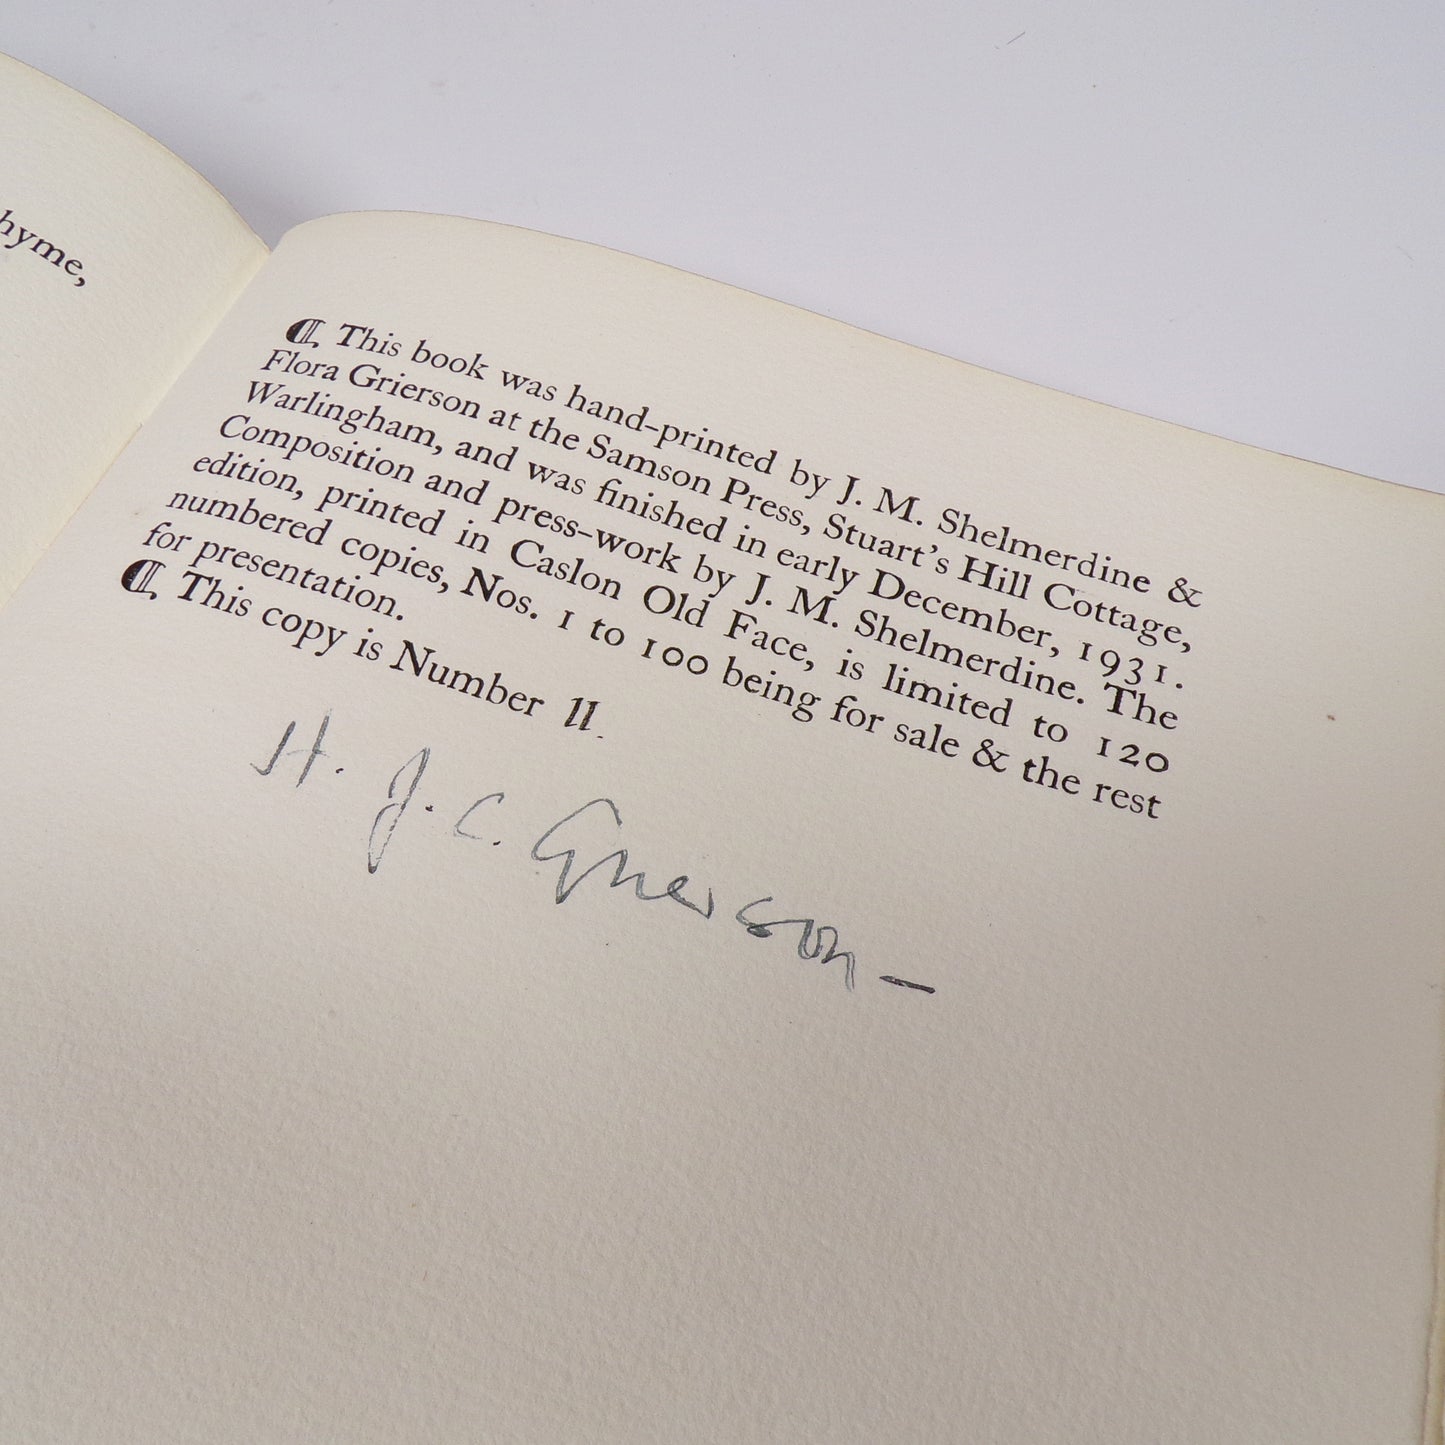 hyme,
¶ This book was hand-printed by J. M. Shelmerdine &
Flora Grierson at the Samson Press, Stuart's Hill Cottage,
Warlingham, and was finished in early December, 1931.
Composition and press-work by J. M. Shelmerdine. The
edition, printed in Caslon Old Face, is limited to 120
numbered copies, Nos. 1 to 100 being for sale & the rest
for presentation.
¶ This copy is Number 11.
H. J. C. Grierson –